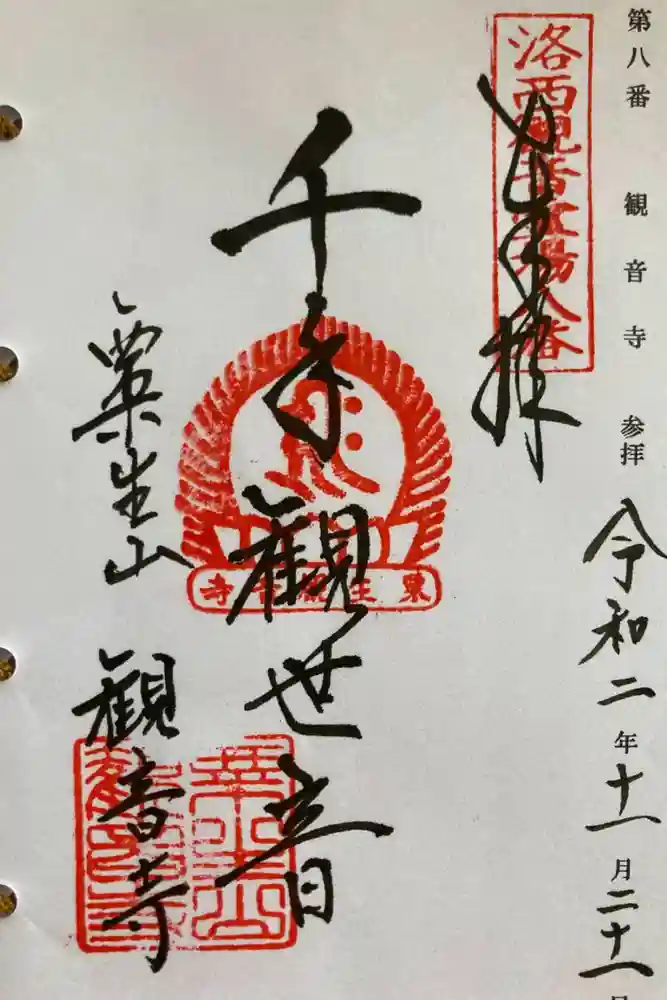 第八番 観音寺 参拝
令和二年十一月二十一日
洛西観音霊場八番
奉拝
千手観世音
粟生山
観音寺
粟生観音寺